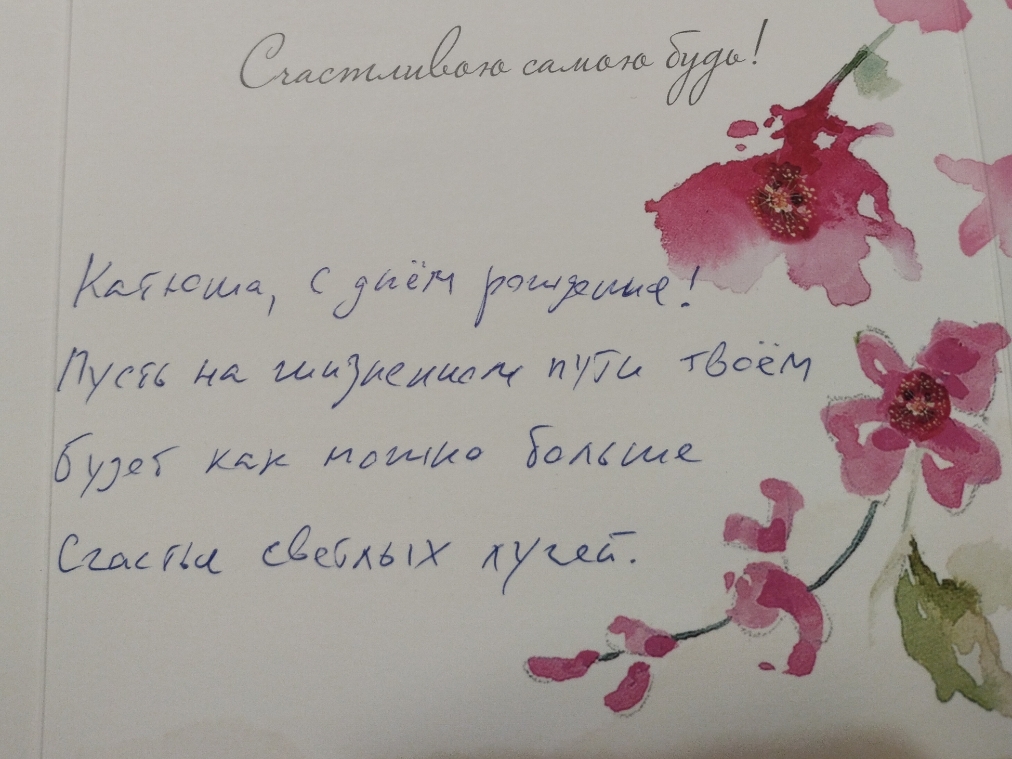 Счастливою самою будь!
Катюша, с днём рождения!
Пусть на жизненном пути твоём
будет как можно больше
Счастья светлых лучей.